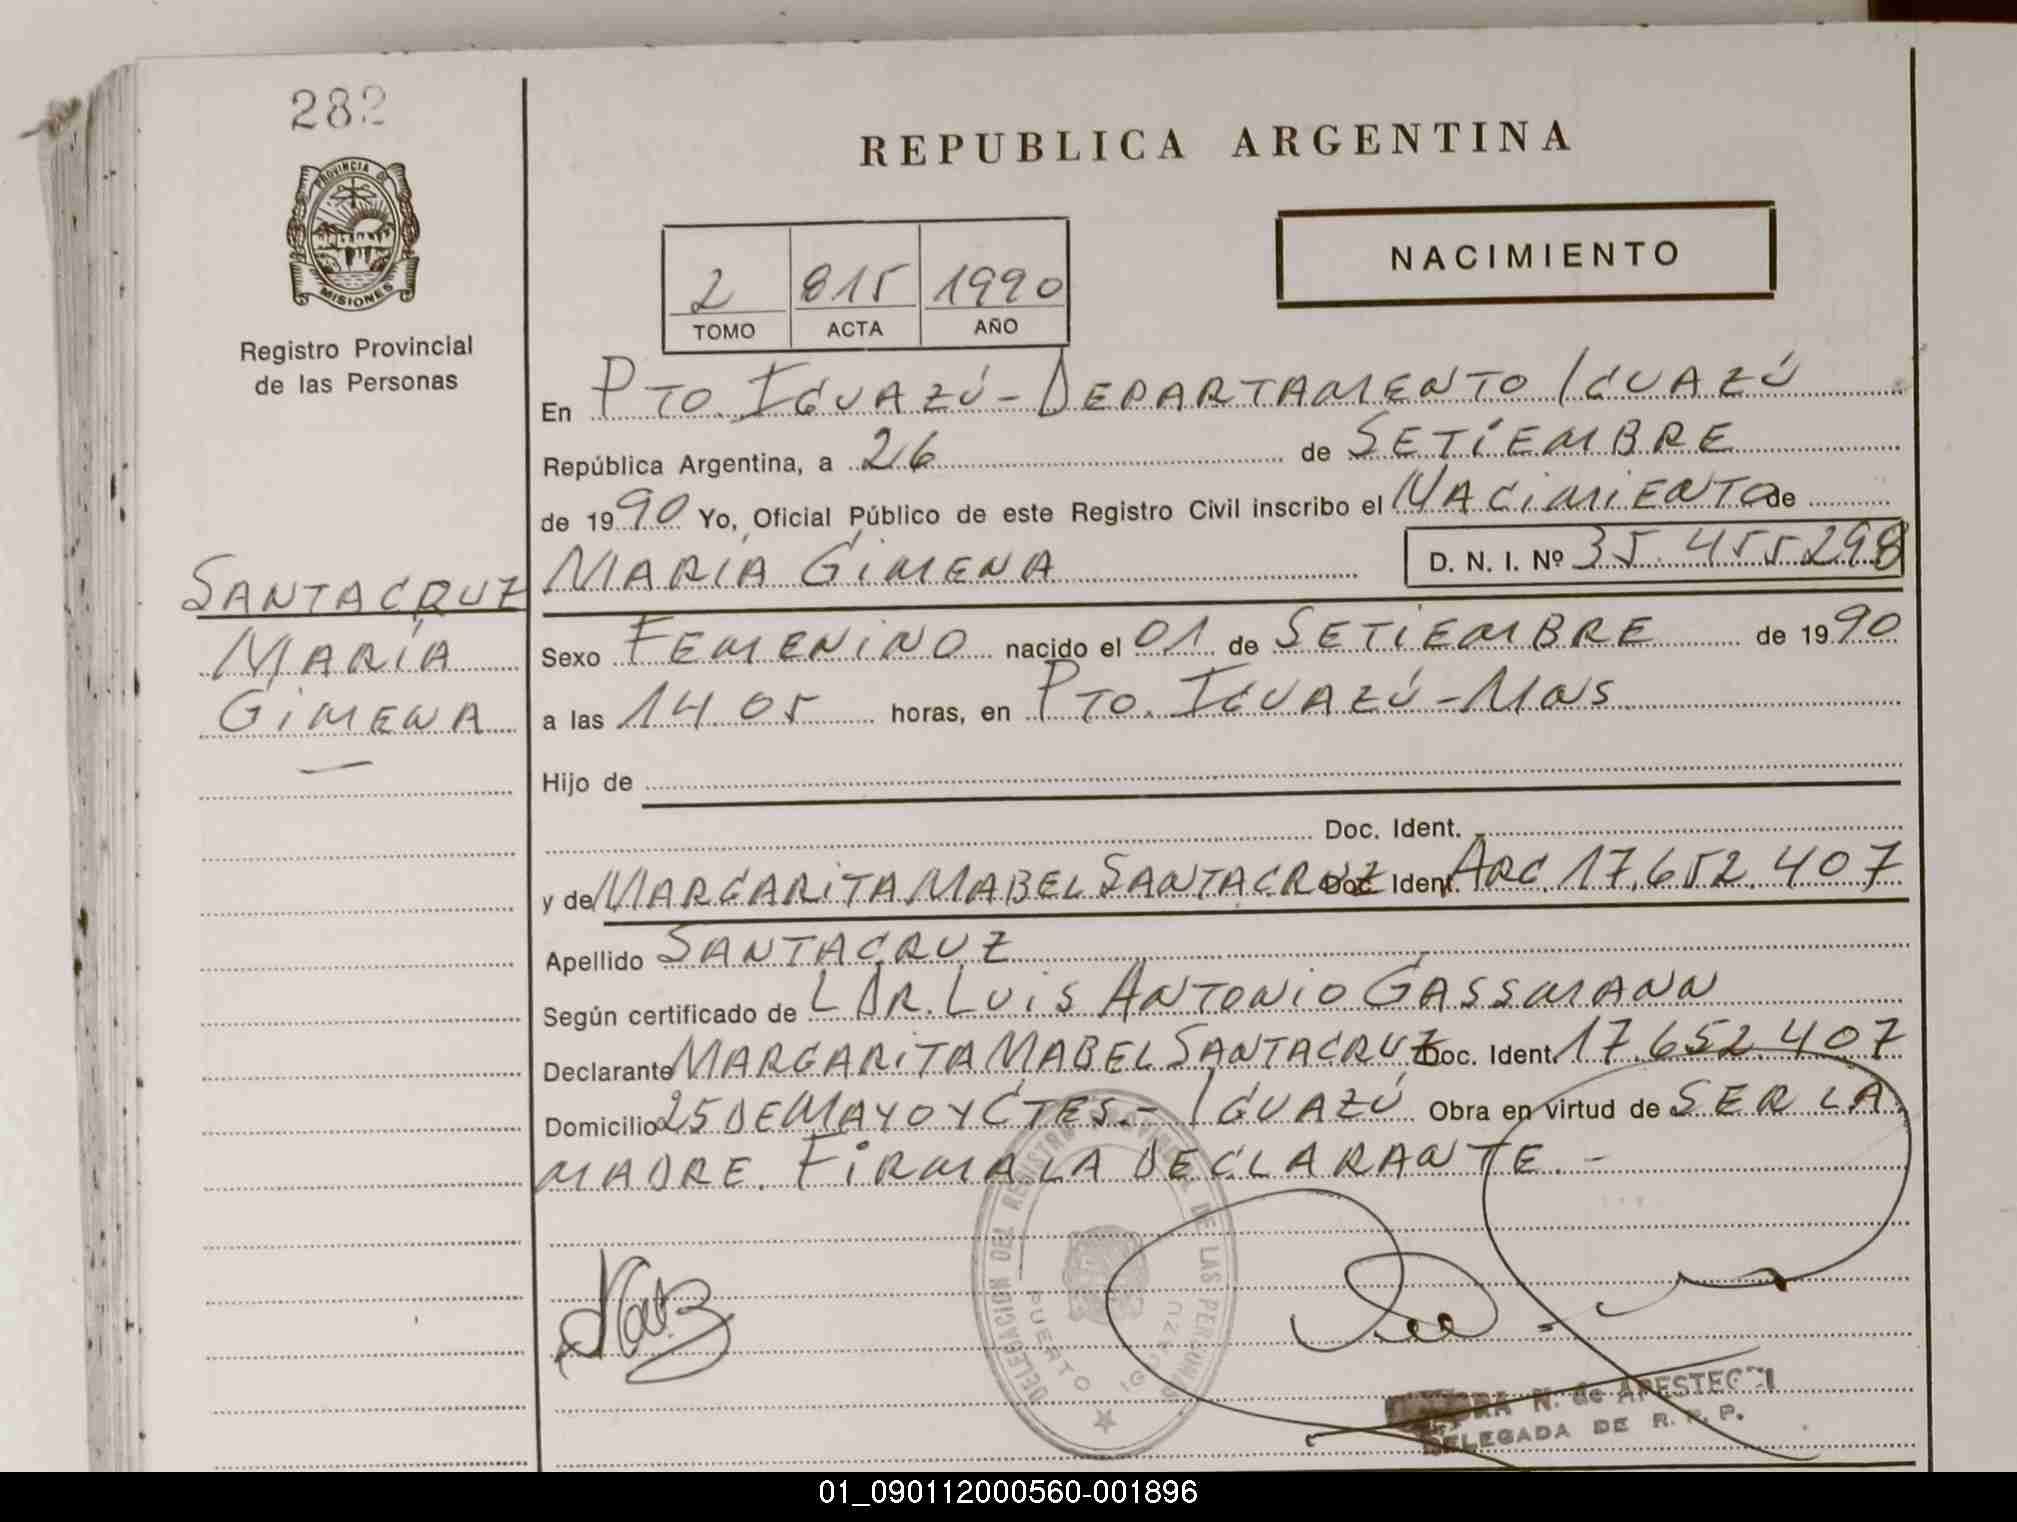 282
PROVINCIA DE
MISIONES
Registro Provincial
de las Personas
SANTACRUZ
MARÍA
GIMENA
REPUBLICA ARGENTINA
NACIMIENTO
2 815 1990
TOMO ACTA AÑO
En PTO. IGUAZÚ - DEPARTAMENTO IGUAZÚ
República Argentina, a 26 de SETIEMBRE
de 1990 Yo, Oficial Público de este Registro Civil inscribo el NACIMIENTO de
MARÍA GIMENA D. N. I. Nº 35.455298
Sexo FEMENINO nacido el 01 de SETIEMBRE de 1990
a las 14.05 horas, en PTO. IGUAZÚ - MNS
Hijo de
Doc. Ident.
y de MARGARITA MABEL SANTACRUZ Doc. Ident. ARG. 17.652.407
Apellido SANTACRUZ
Según certificado de L DR. LUIS ANTONIO GASSMANN
Declarante MARGARITA MABEL SANTACRUZ Doc. Ident. 17.652.407
Domicilio 25 DE MAYO Y CTES. - IGUAZÚ Obra en virtud de SER LA
MADRE. FIRMA LA DECLARANTE. -
DELEGACION DEL REGISTRO DE LAS PERSONAS
PUERTO IGUAZU
N. de
DELEGADA DE R. P. P.
01_090112000560-001896